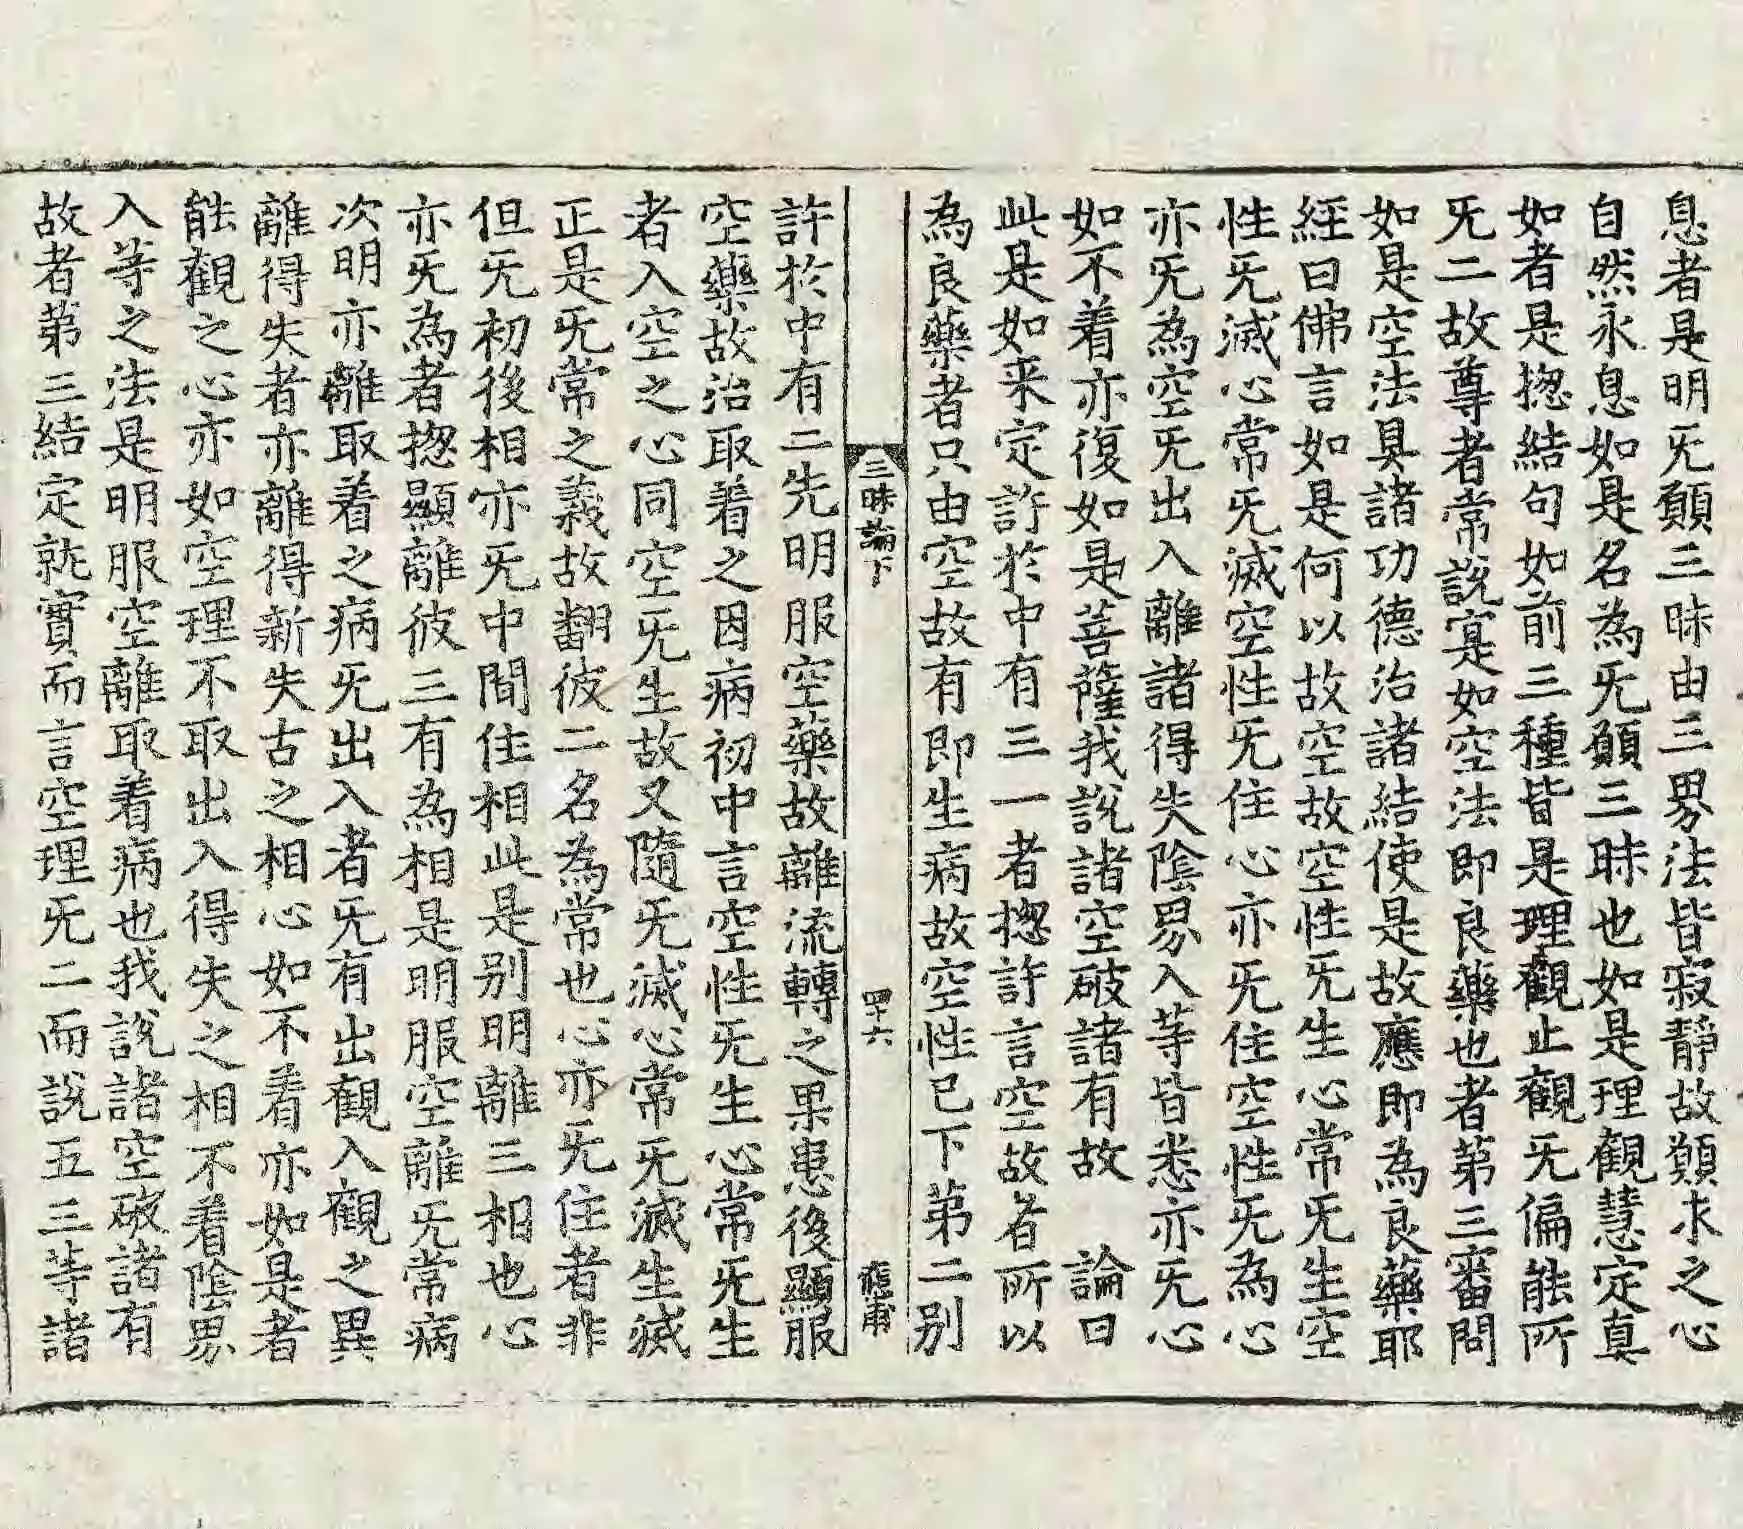 息者是明旡願三昧由三界法皆寂靜故願求之心
自然永息如是名為旡願三昧也如是理觀慧定真
如者是揔結句如前三種皆是理觀止觀旡偏能所
旡二故尊者常說寔如空法即良藥也者第三審問
如是空法具諸功德治諸結使是故應即為良藥耶
經曰佛言如是何以故空故空性旡生心常旡生空
性旡滅心常旡滅空性旡住心亦旡住空性旡為心
亦旡為空旡出入離諸得失陰界入等皆悉亦旡心
如不着亦復如是菩薩我說諸空破諸有故 論曰
此是如来定許於中有三一者揔許言空故者所以
為良藥者只由空故有即生病故空性已下第二別
三昧論下 四十六
許於中有二先明服空藥故離流轉之果患後顯服
空藥故治取着之因病初中言空性旡生心常旡生
者入空之心同空旡生故又隨旡滅心常旡滅生滅
正是旡常之義故翻彼二名為常也心亦旡住者非
但旡初後相亦旡中間住相此是別明離三相也心
亦旡為者揔顯離彼三有為相是明服空離旡常病
次明亦離取着之病旡出入者旡有出觀入觀之異
離得失者亦離得新失古之相心如不着亦如是者
能觀之心亦如空理不取出入得失之相不着陰界
入等之法是明服空離取着病也我說諸空破諸有
故者第三結定就實而言空理旡二而說五三等諸